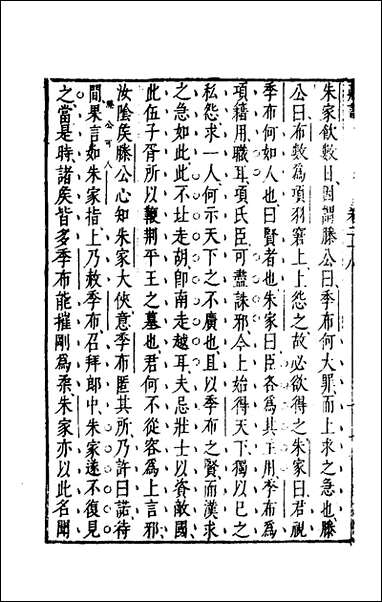 朱家飲數日因謂滕公曰季布何大罪而上求之急也滕
公曰布數為項羽窘上上怨之故必欲得之朱家曰君視
季布何如人也曰賢者也朱家曰臣各為其主用季布為
項籍用職耳項氏臣可盡誅邪今上始得天下獨以已之
私怨求一人何示天下之不廣也且以季布之賢而漢求
之急如此此不北走胡即南走越耳夫忌壯士以資敵國
此伍子胥所以鞭荆平王之墓也君何不從容為上言邪
汝陰矦滕公心知朱家大俠意季布匿其所乃許曰諾待
滕公可人
間果言如朱家指上乃赦季布召拜郎中朱家遂不復見
之當是時諸矦皆多季布能摧剛為柔朱家亦以此名聞